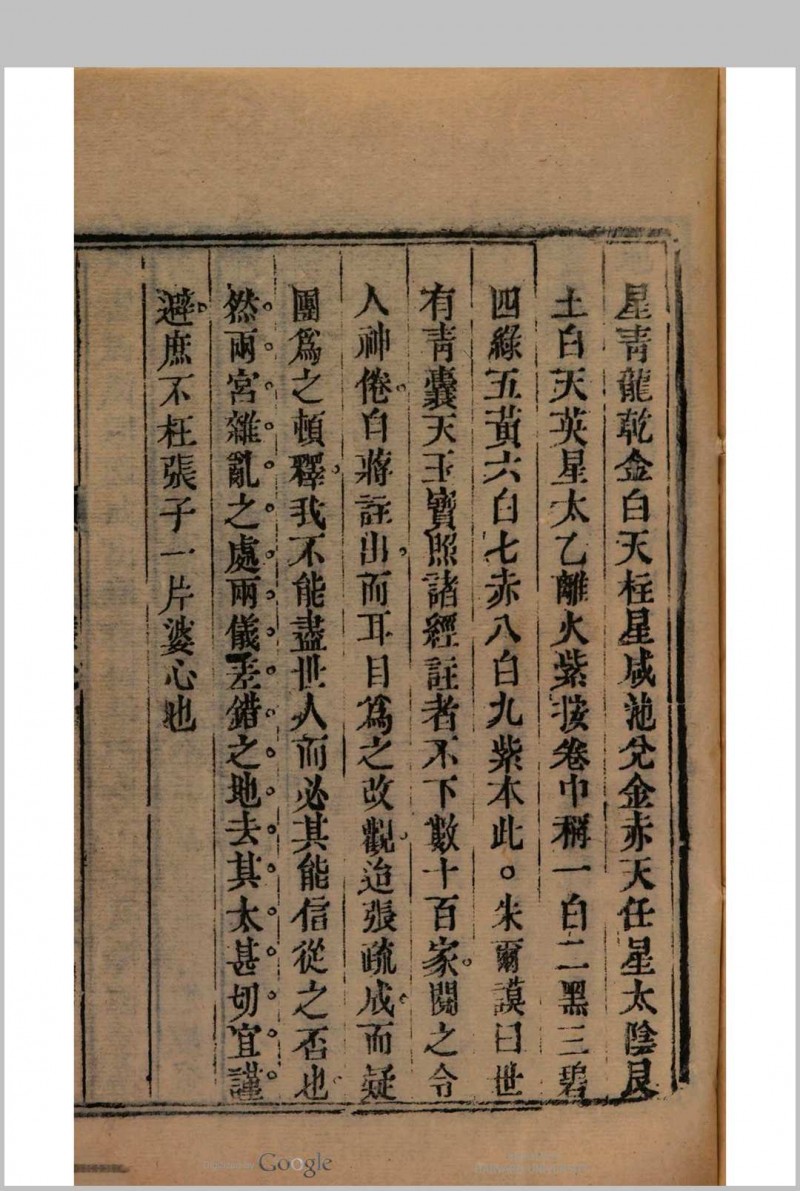 星青龍乾金白天柱星咸池兌金赤天任星太陰艮
土白天英星太乙離火紫按卷中稱一白二黑三碧
四綠五黃六白七赤八白九紫本此。朱爾謨曰世
有青囊天玉寶照諸經註者不下數十百家。閱之令
人神倦。自蔣註出。而耳目為之改觀。迨張疏成。而疑
團為之頓釋。我不能盡世人而必其能信從之否也
然。兩。宮。雜。亂。之。處。兩。儀。差。錯。之。地。去。其。太。甚。切。宜。謹。
避。庶不枉張子一片婆心也
Google